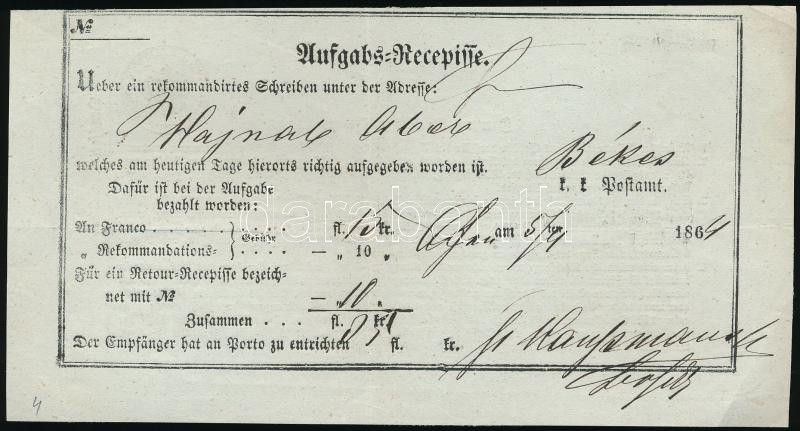 №
Aufgabs-Recepisse.
Ueber ein rekommandirtes Schreiben unter der Adresse:
Hajnal Abel
welches am heutigen Tage hierorts richtig aufgegeben worden ist.
Békes
Dafür ist bei der Aufgabe
bezahlt worden:
k. k Postamt.
An Franco . . . . . . . Gebühr . . . . fl. 15 kr.
am 5/ 1864
„ Rekommandations- . . . . — „ 10 „
Für ein Retour-Recepisse bezeich-
net mit № — „ 10 „
Zusammen . . . fl. kr
Der Empfänger hat an Porto zu entrichten fl. kr.
4
darabanth